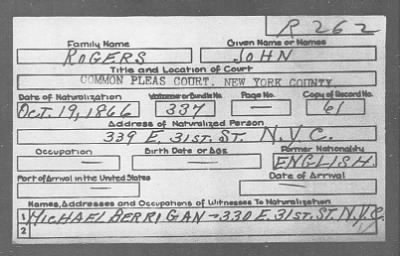 R 262
Family Name Given Name or Names
ROGERS JOHN
Title and Location of Court
COMMON PLEAS COURT, NEW YORK COUNTY
Date of Naturalization Volume or Bundle No. Page No. Copy of Record No.
OCT. 19, 1866 337 — 61
Address of Naturalized Person
339 E. 31ST. ST. N.Y.C.
Occupation Birth Date or Age Former Nationality
— — ENGLISH
Port of Arrival in the United States Date of Arrival
— —
Names, Addresses and Occupations of Witnesses To Naturalization
1 MICHAEL BERRIGAN – 330 E. 31ST. ST. N.Y.C.
2